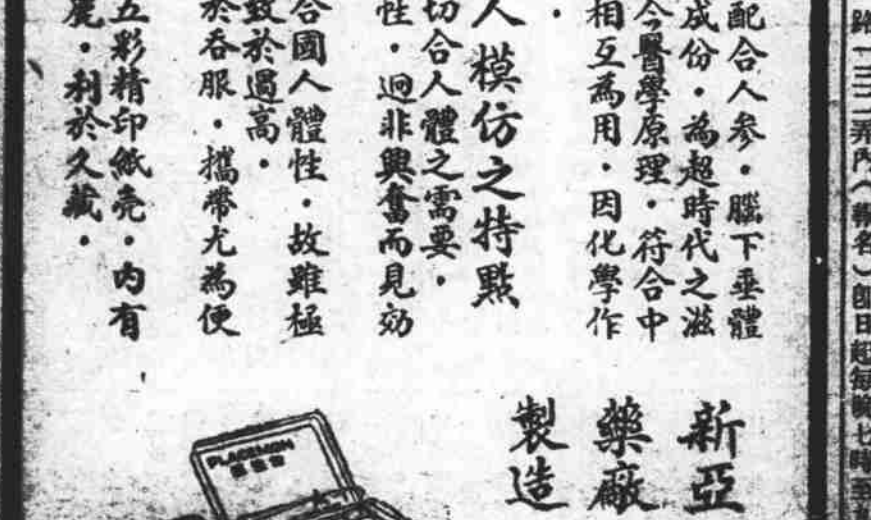 路一三二弄內(報名)卽日起每晚七時至
配合人參．腦下垂體
成份．為超時代之滋
今醫學原理．符合中
相互為用．因化學作
．
人模仿之特點
切合人體之需要．
性．迥非興奮而見効
合國人體性．故雖極
致於過高．
於吞服．攜帶尤為便
五彩精印紙壳．內有
麗．利於久藏．
新亞
藥廠
製造
PLACEMON